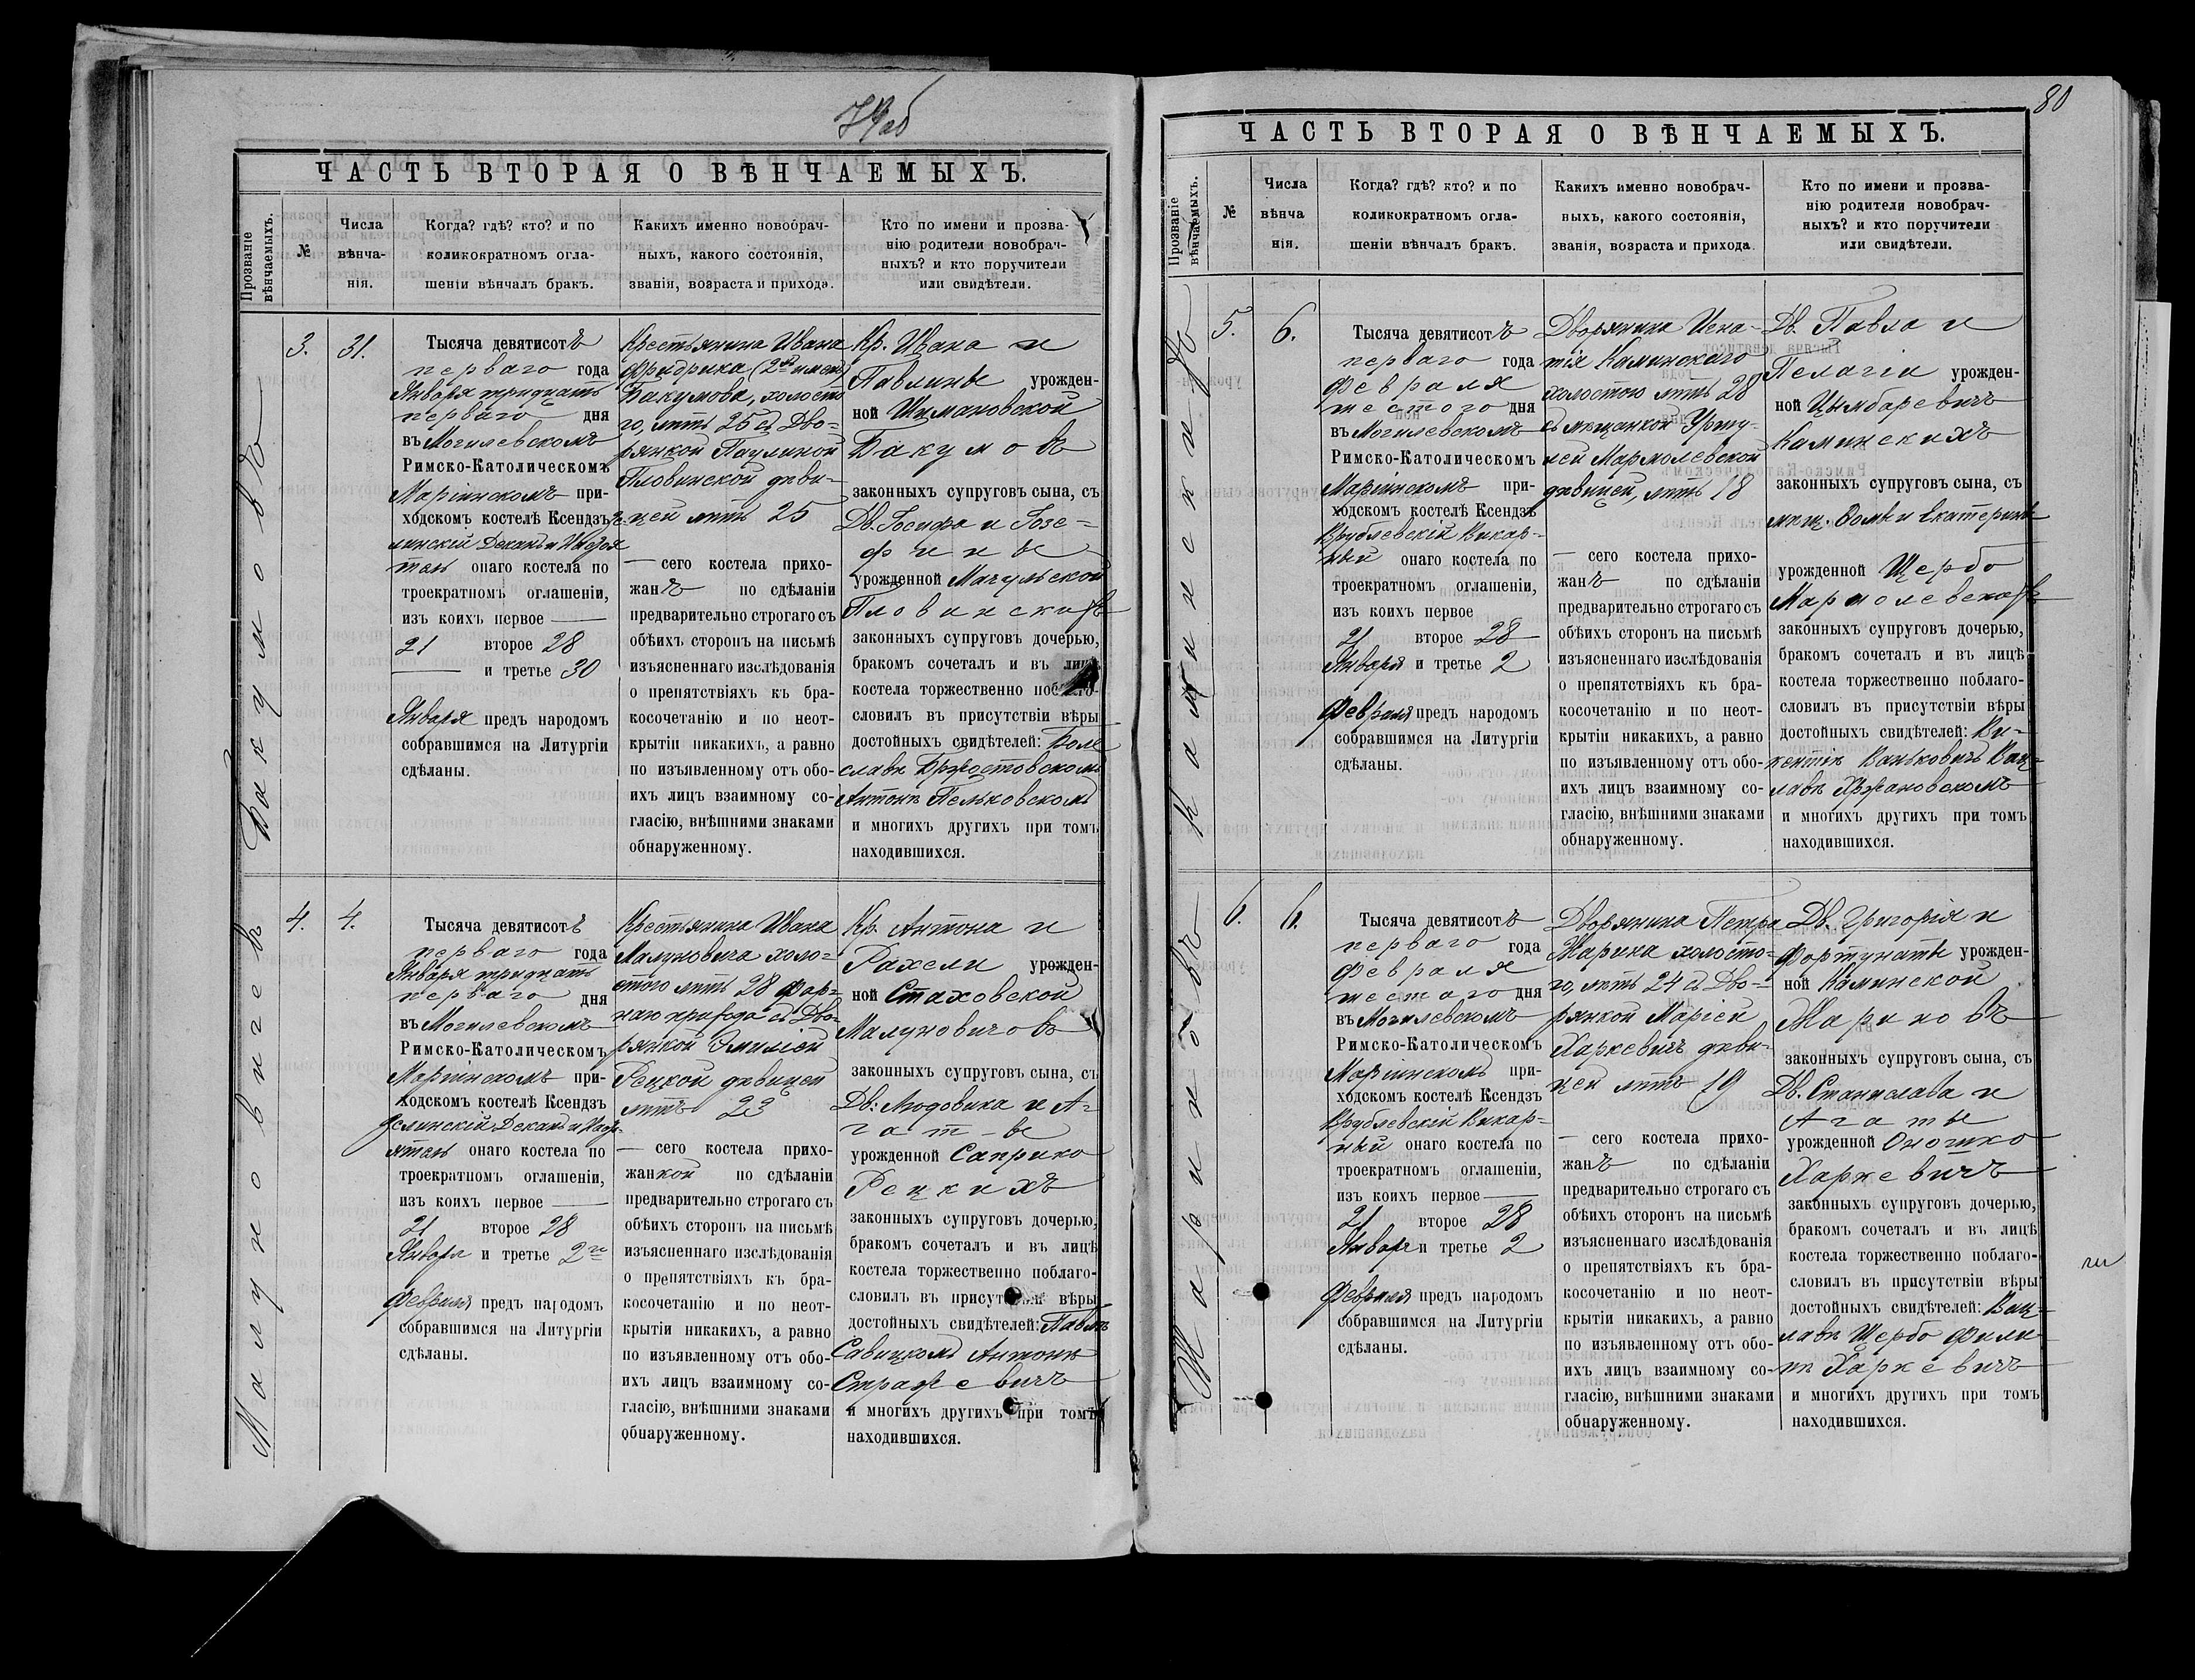 79об
ЧАСТЬ ВТОРАЯ О ВѢНЧАЕМЫХЪ.
Прозваніе вѣнчаемыхъ.
№
Числа
вѣнча-
нія.
Когда? гдѣ? кто? и по
коликократномъ огла-
шеніи вѣнчалъ бракъ.
Какихъ именно новобрач-
ныхъ, какого состоянія,
званія, возраста и прихода.
Кто по имени и прозва-
нію родители новобрач-
ныхъ? и кто поручители
или свидѣтели.
Бакумовъ
3.
31.
Тысяча девятисотъ
перваго года
Января тридцать
перваго дня
въ Могилевскомъ
Римско-Католическомъ
Маріинскомъ при-
ходскомъ костелѣ Ксендзъ
линскій Деканъ и
онаго костела по
троекратномъ оглашеніи,
изъ коихъ первое
21 второе 28
и третье 30
Января предъ народомъ
собравшимся на Литургіи
сдѣланы.
Крестьянина Ивана
Фридрика (2хъ именъ)
Бакумова, холосто
го, лѣтъ 25 съ Дво=
рянкой Паулиной
Пловинской дѣви-
цей лѣтъ 25
сего костела прихо-
жанъ по сдѣланіи
предварительно строгаго съ
обѣихъ сторонъ на письмѣ
изъясненнаго изслѣдованія
о препятствіяхъ къ бра-
косочетанію и по неот-
крытіи никакихъ, а равно
по изъявленному отъ обо-
ихъ лицъ взаимному со-
гласію, внѣшними знаками
обнаруженному.
Кр. Ивана и
Павлины урожден-
ной Шимановской
Бакумовъ
законныхъ супруговъ сына, съ
Дв. Іосифа и Іозе=
фины
урожденной Мачульской
Пловинскихъ
законныхъ супруговъ дочерью,
бракомъ сочеталъ и въ лицѣ
костела торжественно поблаго-
словилъ въ присутствіи вѣры
достойныхъ свидѣтелей: Боле
славѣ Бржостовскомъ
Антонѣ Пельковскомъ
и многихъ другихъ при томъ
находившихся.
Малуновичевъ
4.
4.
Тысяча девятисотъ
перваго года
Января тридцать
перваго дня
въ Могилевскомъ
Римско-Католическомъ
Маріинскомъ при-
ходскомъ костелѣ Ксендзъ
линскій Деканъ и
онаго костела по
троекратномъ оглашеніи,
изъ коихъ первое
21 второе 28
Января и третье 2го
Февраля предъ народомъ
собравшимся на Литургіи
сдѣланы.
Крестьянина Ивана
Малуновича холо=
стого лѣтъ 28 фар=
наго прихода съ Дво=
рянкой Эмиліей
Рецкой дѣвицей
лѣтъ 23
сего костела прихо-
жанкой по сдѣланіи
предварительно строгаго съ
обѣихъ сторонъ на письмѣ
изъясненнаго изслѣдованія
о препятствіяхъ къ бра-
косочетанію и по неот-
крытіи никакихъ, а равно
по изъявленному отъ обо-
ихъ лицъ взаимному со-
гласію, внѣшними знаками
обнаруженному.
Кр. Антона и
Рахели урожден-
ной Стаховской
Малуновичовъ
законныхъ супруговъ сына, съ
Дв: Людовика и А=
гаты
урожденной Саприко
Рецкихъ
законныхъ супруговъ дочерью,
бракомъ сочеталъ и въ лицѣ
костела торжественно поблаго-
словилъ въ присутствіи вѣры
достойныхъ свидѣтелей: Павлѣ
Савицкомъ Антонѣ
Стражевичъ
и многихъ другихъ при томъ
находившихся.
80
ЧАСТЬ ВТОРАЯ О ВѢНЧАЕМЫХЪ.
Прозваніе вѣнчаемыхъ.
№
Числа
вѣнча
нія.
Когда? гдѣ? кто? и по
коликократномъ огла-
шеніи вѣнчалъ бракъ.
Какихъ именно новобрач-
ныхъ, какого состоянія,
званія, возраста и прихода
Кто по имени и прозва-
нію родители новобрач-
ныхъ? и кто поручители
или свидѣтели.
Каминскихъ
5.
6.
Тысяча девятисотъ
перваго года
Февраля
шестого дня
въ Могилевскомъ
Римско-Католическомъ
Маріинскомъ при-
ходскомъ костелѣ Ксендзъ
Врублевскій Викар-
ный онаго костела по
троекратномъ оглашеніи,
изъ коихъ первое
21 второе 28
Января и третье 2
Февраля предъ народомъ
собравшимся на Литургіи
сдѣланы.
Дворянина Игна-
тія Каминскаго
холостого лѣтъ 28
съ мѣщанкой Уршу-
лей Мармолевской
дѣвицей, лѣтъ 18
сего костела прихо-
жанъ по сдѣланіи
предварительно строгаго съ
обѣихъ сторонъ на письмѣ
изъясненнаго изслѣдованія
о препятствіяхъ къ бра-
косочетанію и по неот-
крытіи никакихъ, а равно
по изъявленному отъ обо-
ихъ лицъ взаимному со-
гласію, внѣшними знаками
обнаруженному.
Дв. Павла и
Пелагіи урожден-
ной Цымбаревичъ
Каминскихъ
законныхъ супруговъ сына, съ
мѣщ. Ѳомы и Екатерины
урожденной Щербо
Мармолевскихъ
законныхъ супруговъ дочерью,
бракомъ сочеталъ и въ лицѣ
костела торжественно поблаго-
словилъ въ присутствіи вѣры
достойныхъ свидѣтелей: Ви=
кентіѣ Ваньковичъ Вац=
лавѣ Хржановскомъ
и многихъ другихъ при томъ
находившихся.
Жариновъ
6.
6.
Тысяча девятисотъ
перваго года
Февраля
шестого дня
въ Могилевскомъ
Римско-Католическомъ
Маріинскомъ при-
ходскомъ костелѣ Ксендзъ
Врублевскій Викар-
ный онаго костела по
троекратномъ оглашеніи,
изъ коихъ первое
21 второе 28
Января и третье 2
Февраля предъ народомъ
собравшимся на Литургіи
сдѣланы.
Дворянина Петра
Жарина холосто=
го, лѣтъ 24 съ Дво-
рянкой Маріей
Харкевичъ дѣви=
цей лѣтъ 19
сего костела прихо-
жанъ по сдѣланіи
предварительно строгаго съ
обѣихъ сторонъ на письмѣ
изъясненнаго изслѣдованія
о препятствіяхъ къ бра-
косочетанію и по неот-
крытіи никакихъ, а равно
по изъявленному отъ обо-
ихъ лицъ взаимному со-
гласію, внѣшними знаками
обнаруженному.
Дв. Григорія и
Фортунаты урожден-
ной Каминской
Жариновъ
законныхъ супруговъ сына, съ
Дв. Станислава и
Агаты
урожденной Оношко
Харкевичъ
законныхъ супруговъ дочерью,
бракомъ сочеталъ и въ лицѣ
костела торжественно поблаго-
словилъ въ присутствіи вѣры
достойныхъ свидѣтелей: Вац=
лавѣ Щербо Фили
пѣ Харкевичъ
и многихъ другихъ при томъ
находившихся.